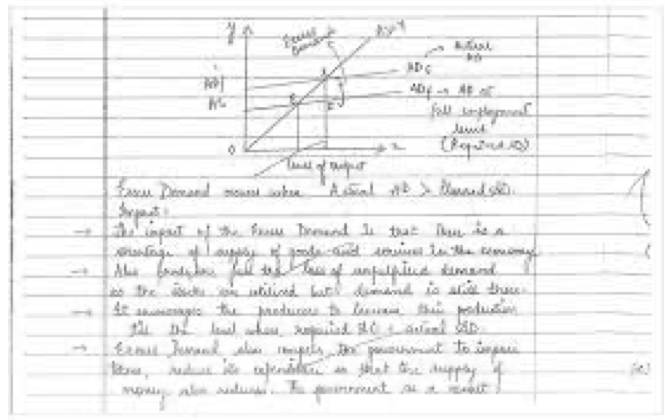 y
Excess Demand
AD=Y
Actual AD
ADE
ADF → AD at
full employment
level
(Required AD)
E
O
x
level of output
Excess Demand occurs when Actual AD > Planned AD.
Impact:
→ The impact of the Excess Demand is that there is a
shortage of supply of goods and services in the economy
→ Also producers the of unfulfilled demand
as the stocks are utilised but demand is still there.
→ It encourages the producers to increase their production
till the level where required AD = actual AD.
→ Excess Demand also compels the government to impose
taxes, reduce its expenditure so that the supply of
money also reduces. The government as a result